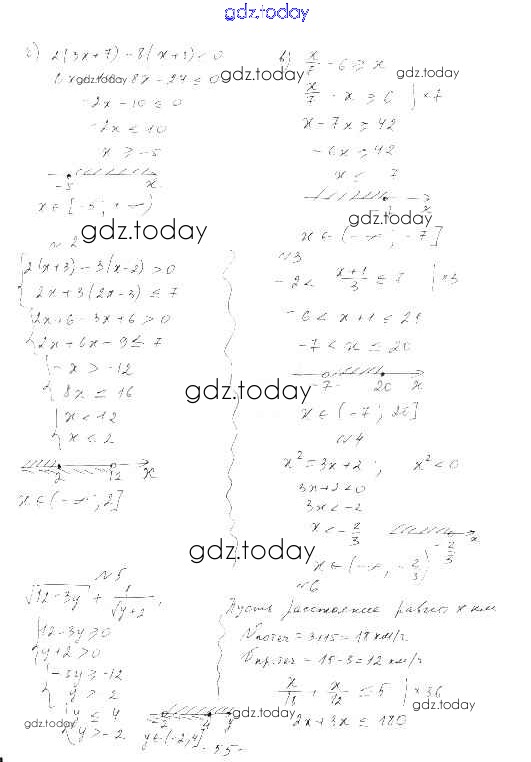 gdz.today
б) 2(3x+7)-8(x+3)<0
gdz.today
8x-24≤0
gdz.today
-2x-10≤0
-2x<10
x≥-5
-5 x
x∈[-5;+∞)
в) x/7 - 6 ≥ x
gdz.today
x/7 - x ≥ 6 |×7
x-7x≥42
-6x≥42
x≤ 7
gdz.today
x∈(-∞;-7]
gdz.today
№2
{2(x+3)-3(x-2)>0
2x+3(2x-3)≤7
{2x+6-3x+6>0
2x+6x-9≤7
{-x>-12
8x≤16
{x<12
x≤2
2 12 x
x∈(-∞;2]
№3
-2< (x+1)/3 ≤7 |×3
-6<x+1≤21
-7<x≤20
-7 20 x
gdz.today
x∈(-7;20]
№4
x²=3x+2; x²<0
3x+2<0
3x<-2
x<-2/3
-2/3 x
gdz.today
x∈(-∞,-2/3)
№5
√12-3y + 1/√y+2;
{12-3y≥0
y+2>0
{-3y≥-12
y>-2
{y≤4
y>-2
gdz.today
-2 4 y
y∈(-2,4]
№6
Пусть расстояние равно x км
Vпо теч = 3+15=18 км/ч
Vпр. теч = 15-3=12 км/ч
x/18 + x/12 ≤ 5 |×36
gdz.today
2x+3x≤180
gdz.today
-55-